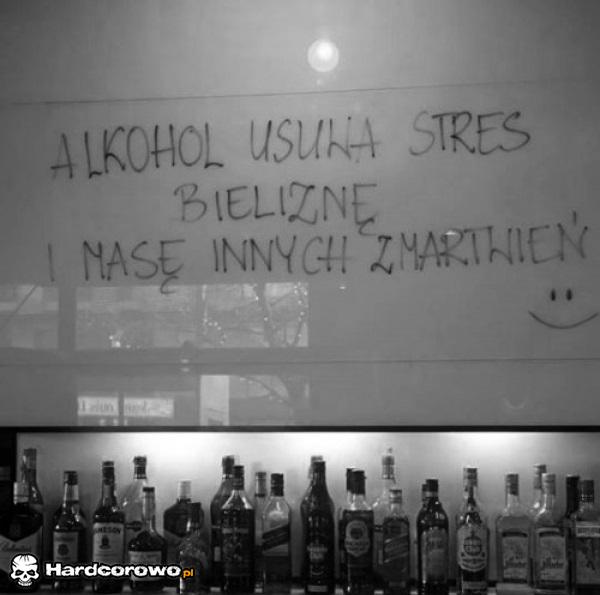 ALKOHOL USUWA STRES
BIELIZNĘ
I MASĘ INNYCH ZMARTWIEŃ
Hardcorowo.pl